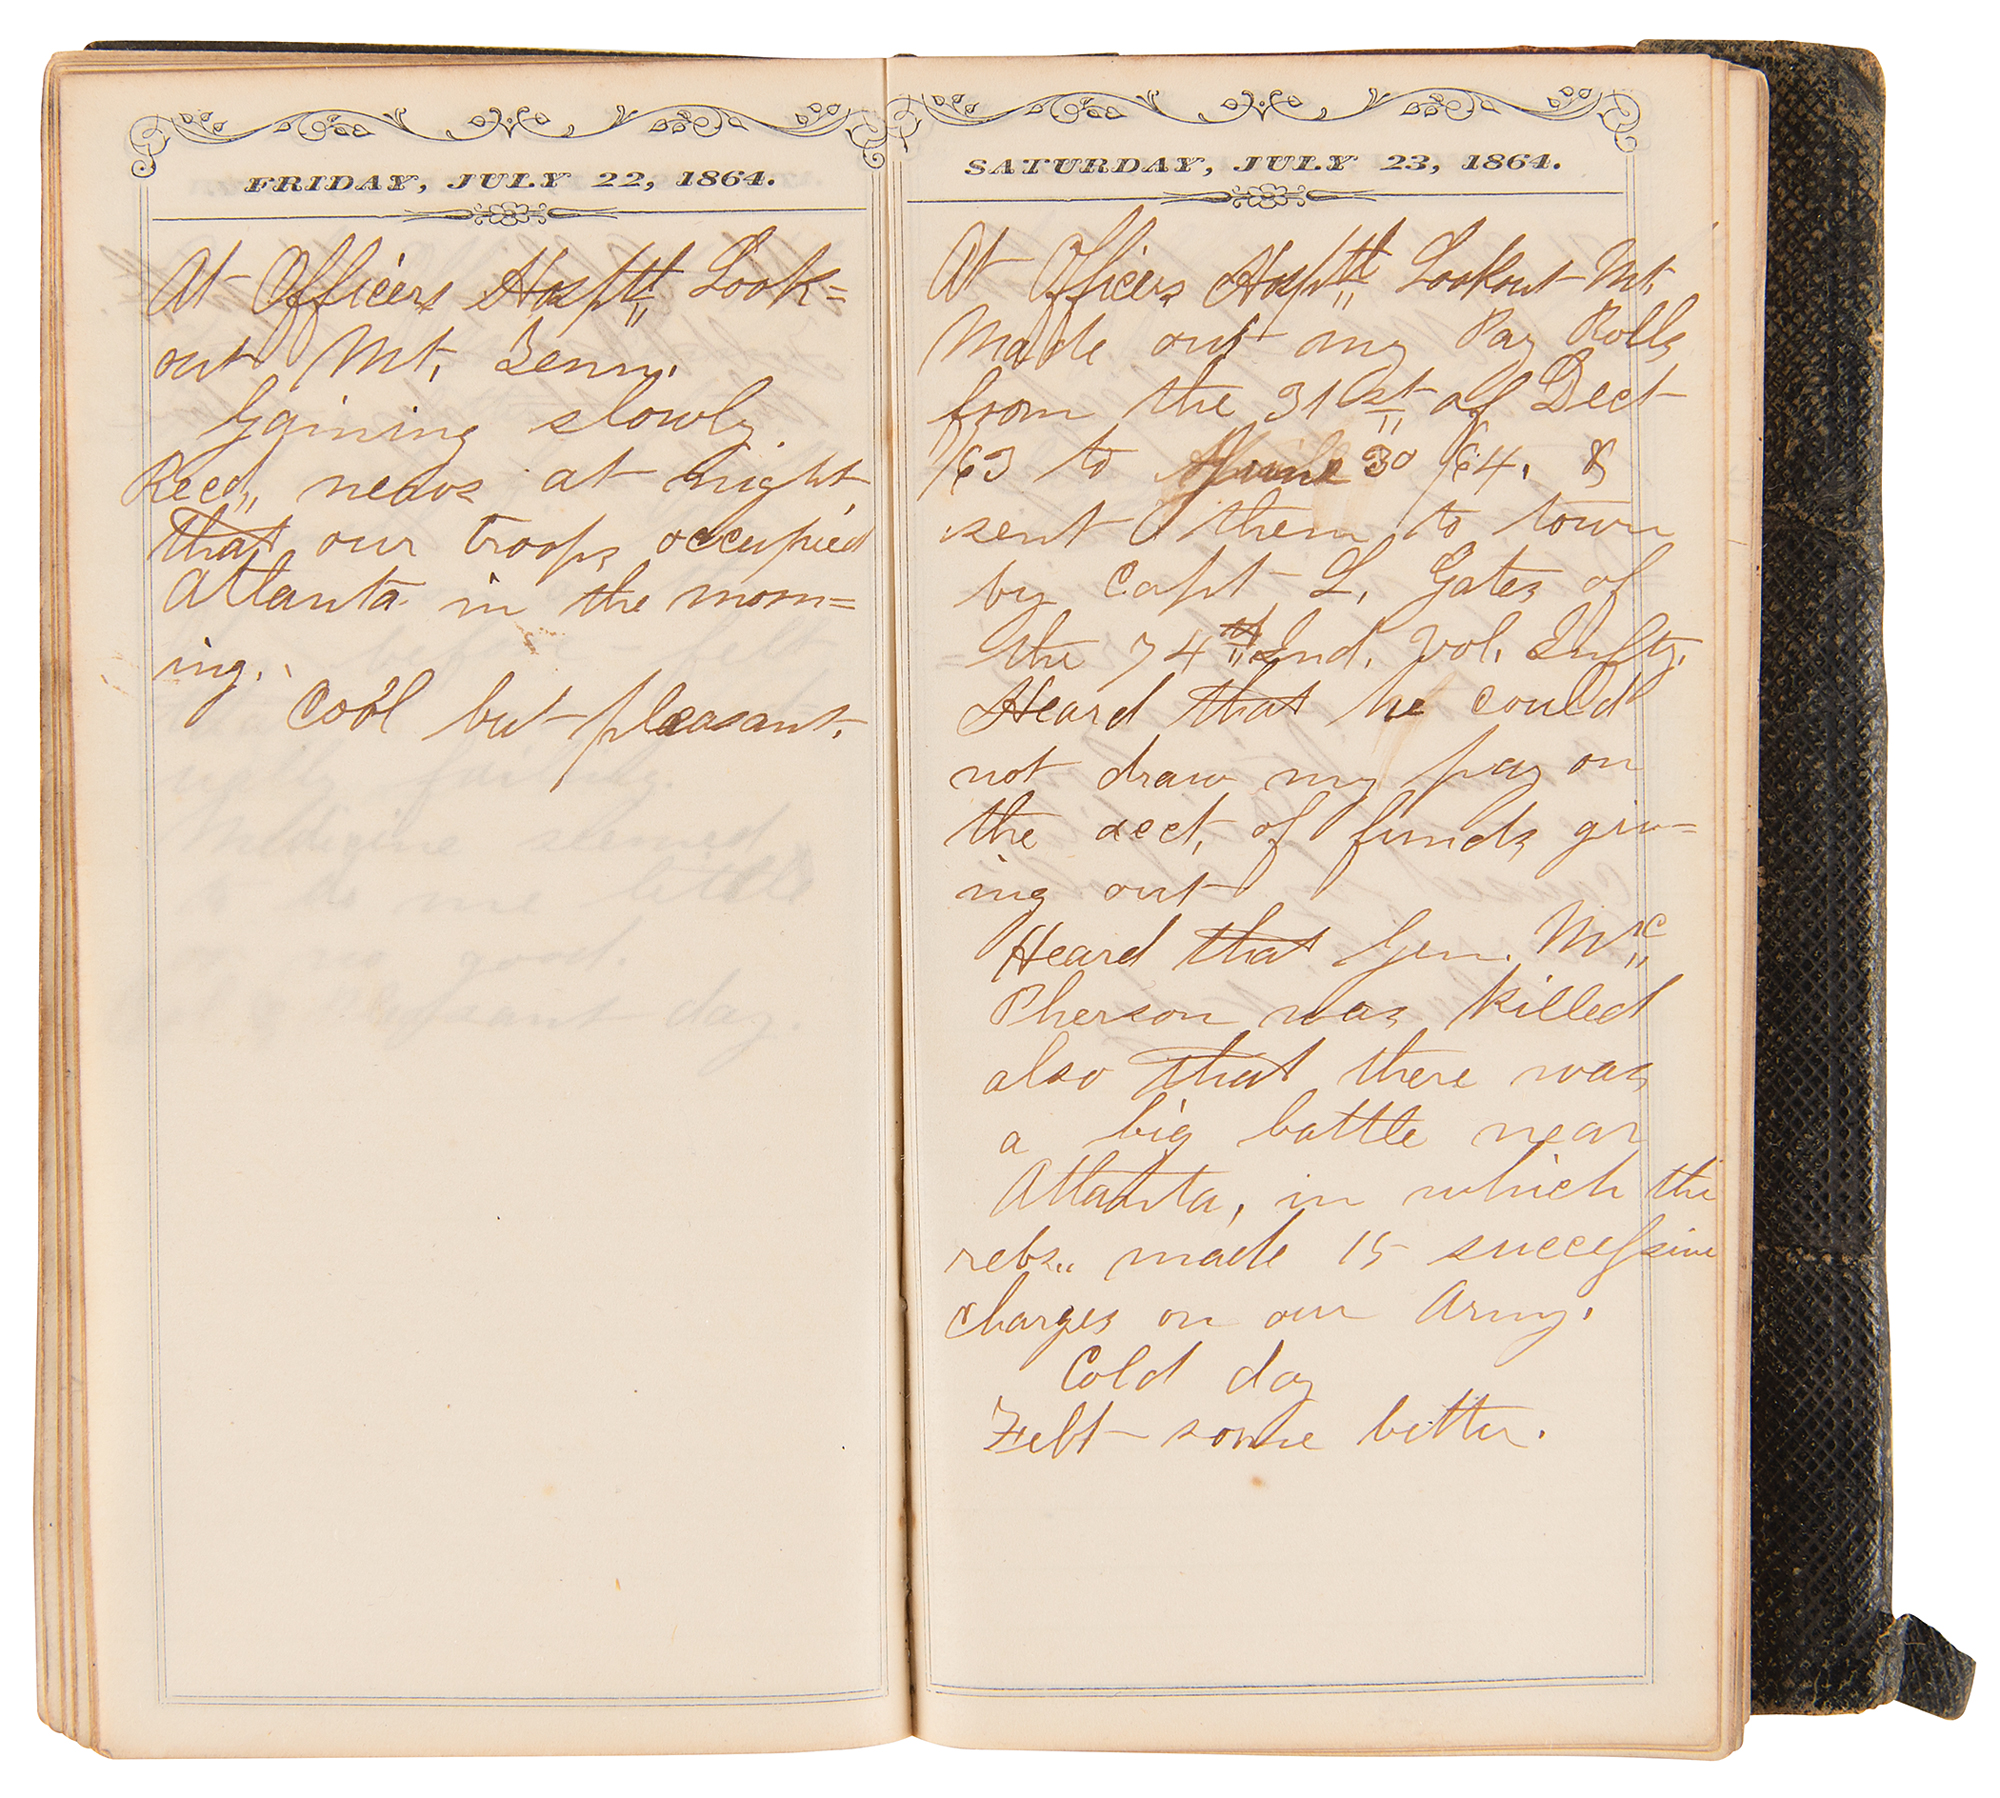 FRIDAY, JULY 22, 1864.
At Officers Hosptl Look=
out Mt. Tenn.
Gaining slowly.
Recd, news at night
that our troops occupied
Atlanta in the morn=
ing.
Cool but pleasant.
SATURDAY, JULY 23, 1864.
At Officers Hosptl Lookout Mt.
Made out my Pay Rolls
from the 31st of Dect
/63 to 30 /64. &
sent them to town
by Capt L. Gates of
the 74th Ind. Vol. Infty.
Heard that he could
not draw my pay on
the acct. of funds giv-
ing out
Heard that Gen. Mc
Pherson was killed
also that there was
a big battle near
Atlanta, in which the
rebs. made 15 successive
charges on our Army.
Cold day
Felt some better.